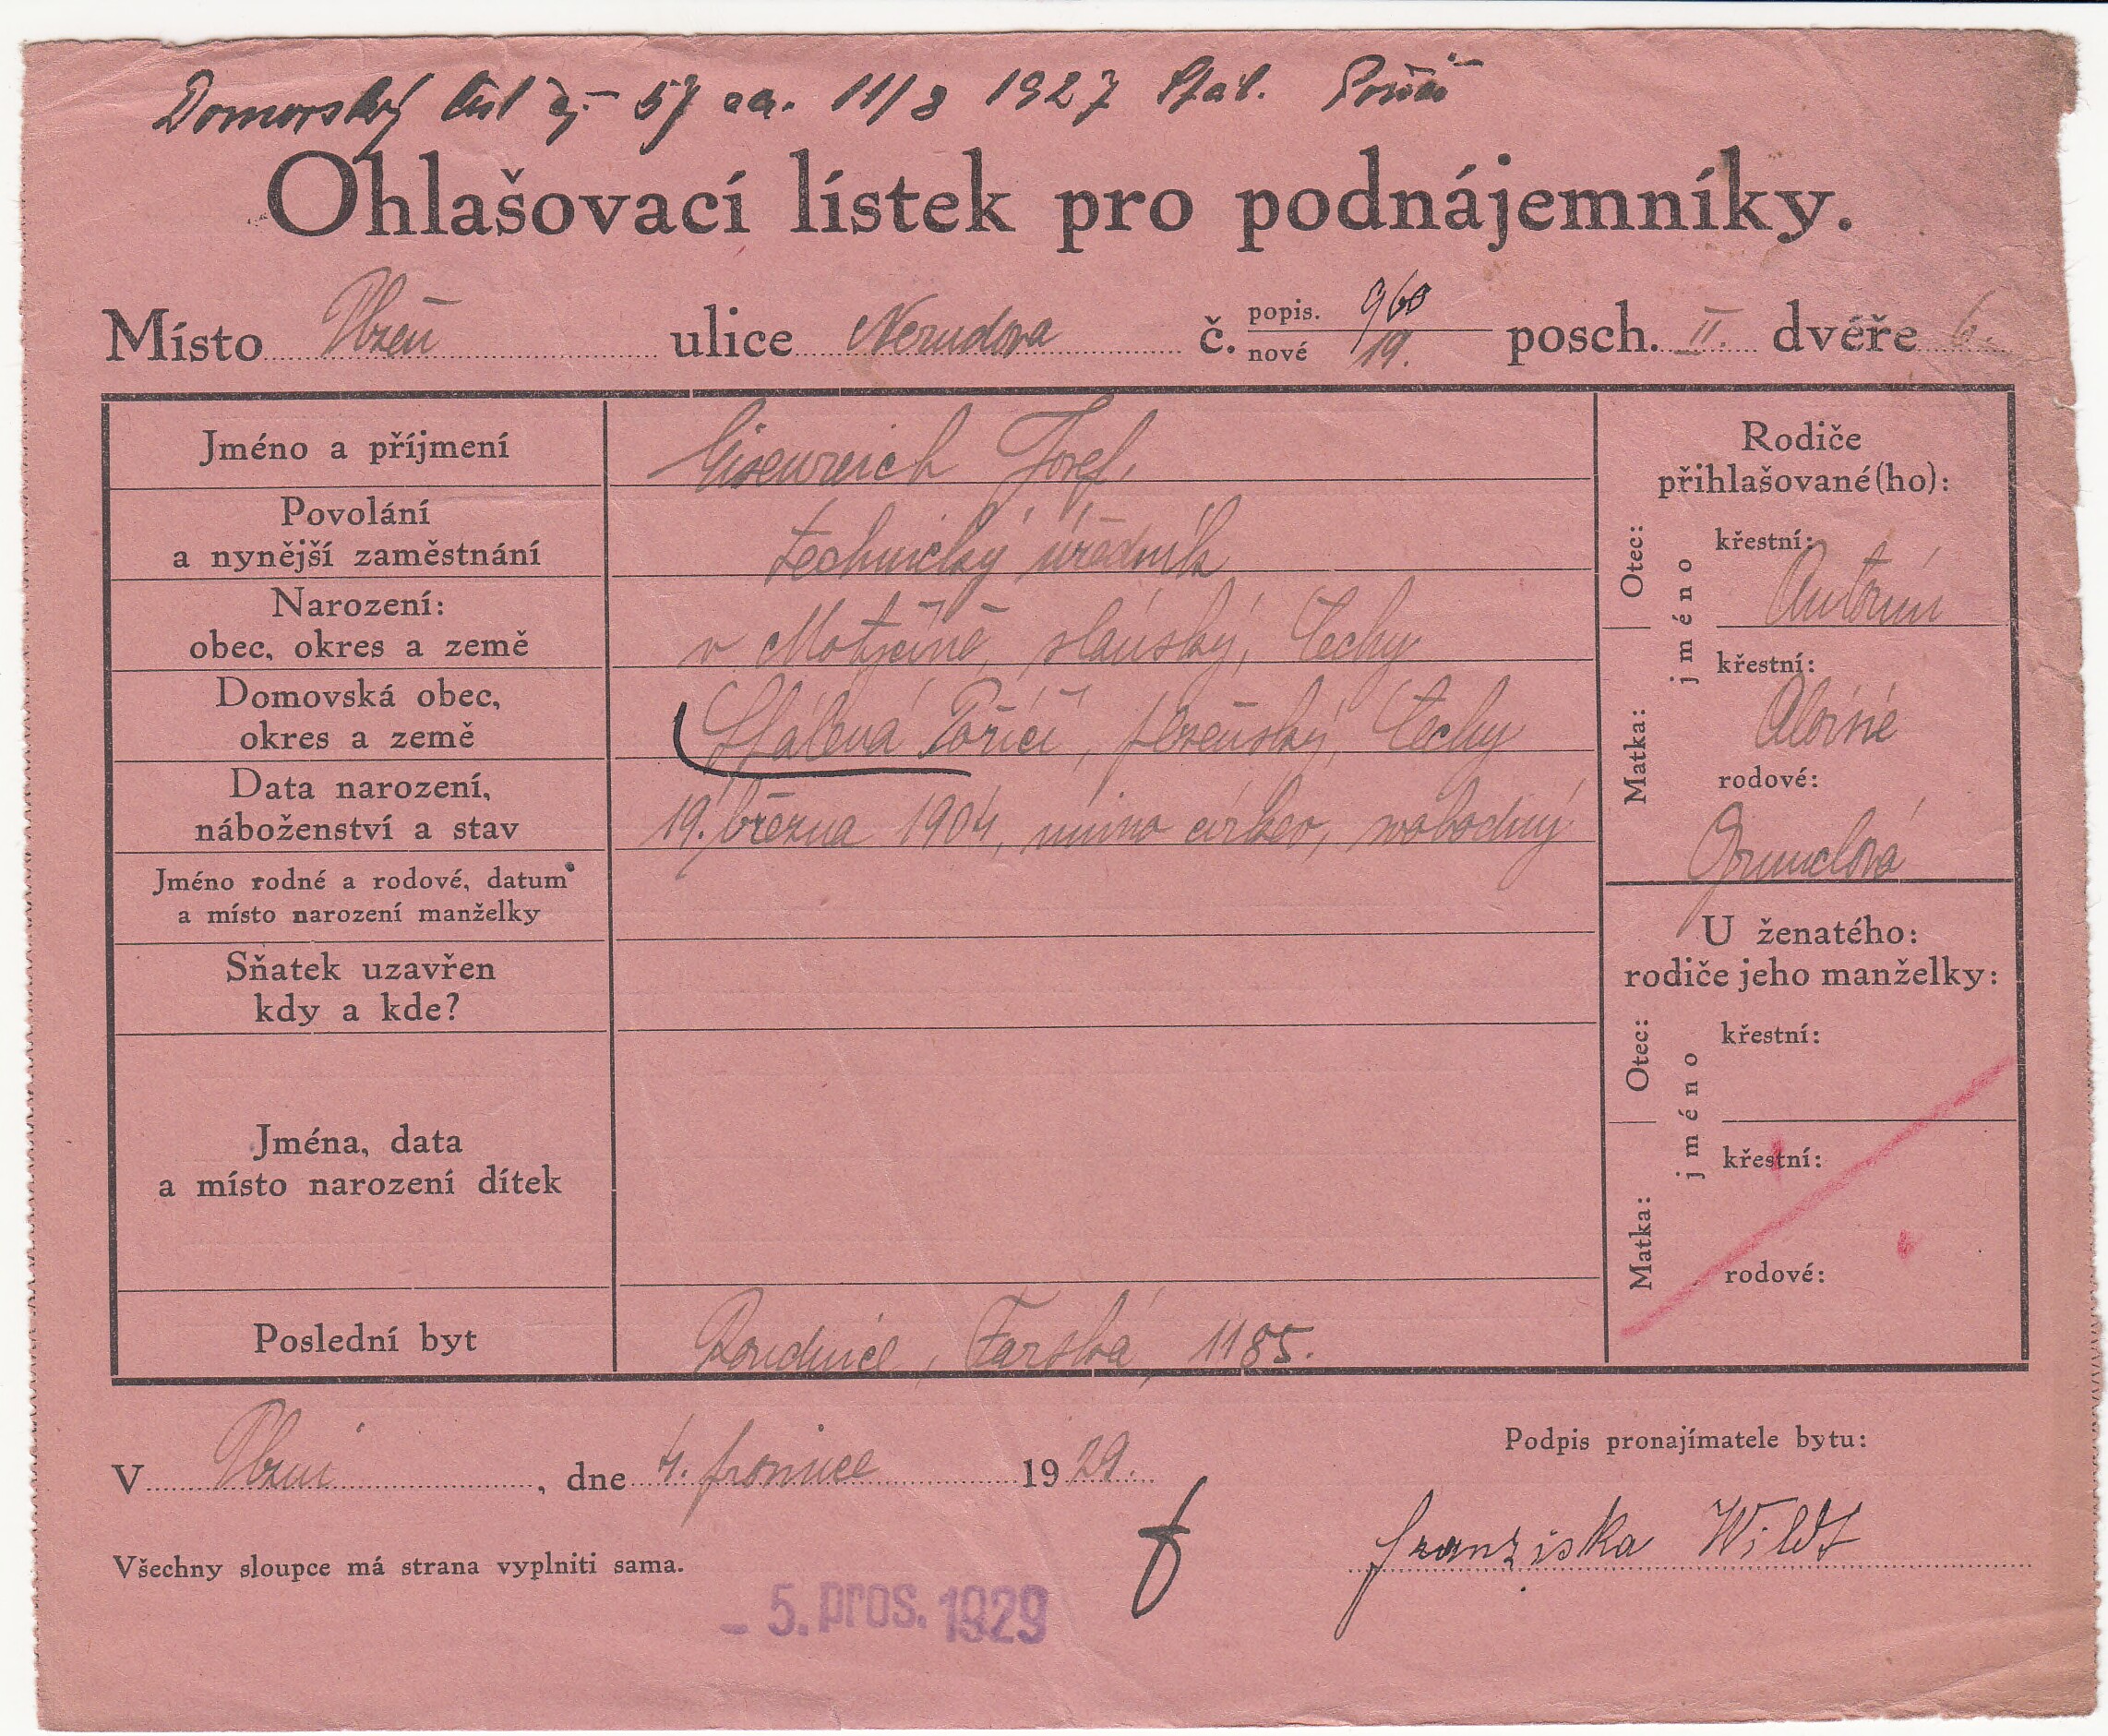 Domovský list čj. 57 aa. 11/8 1927 Šťáh. Poříčí
Ohlašovací lístek pro podnájemníky.
Místo Plzeň ulice Nerudova č. popis. 960 nové 19. posch. II. dvéře 6.
Jméno a příjmení Eisenreich Josef,
Povolání
a nynější zaměstnání technický úředník
Narození:
obec, okres a země v Motyčíně, slánský, Čechy
Domovská obec,
okres a země Poříčí, plzeňský, Čechy
Data narození,
náboženství a stav 19. března 1904, mimo církev, svobodný
Jméno rodné a rodové, datum
a místo narození manželky
Sňatek uzavřen
kdy a kde?
Jména, data
a místo narození dítek
Poslední byt Roudnice, Farská, 1185.
Rodiče
přihlašované(ho):
Otec:
jméno
křestní:
Antonín
Matka:
křestní:
Aloisie
rodové:
U ženatého:
rodiče jeho manželky:
Otec:
jméno
křestní:
Matka:
křestní:
rodové:
V Plzni, dne 4. prosince 1929.
Podpis pronajímatele bytu:
Franziska Wildt
Všechny sloupce má strana vyplniti sama.
– 5. pros. 1929